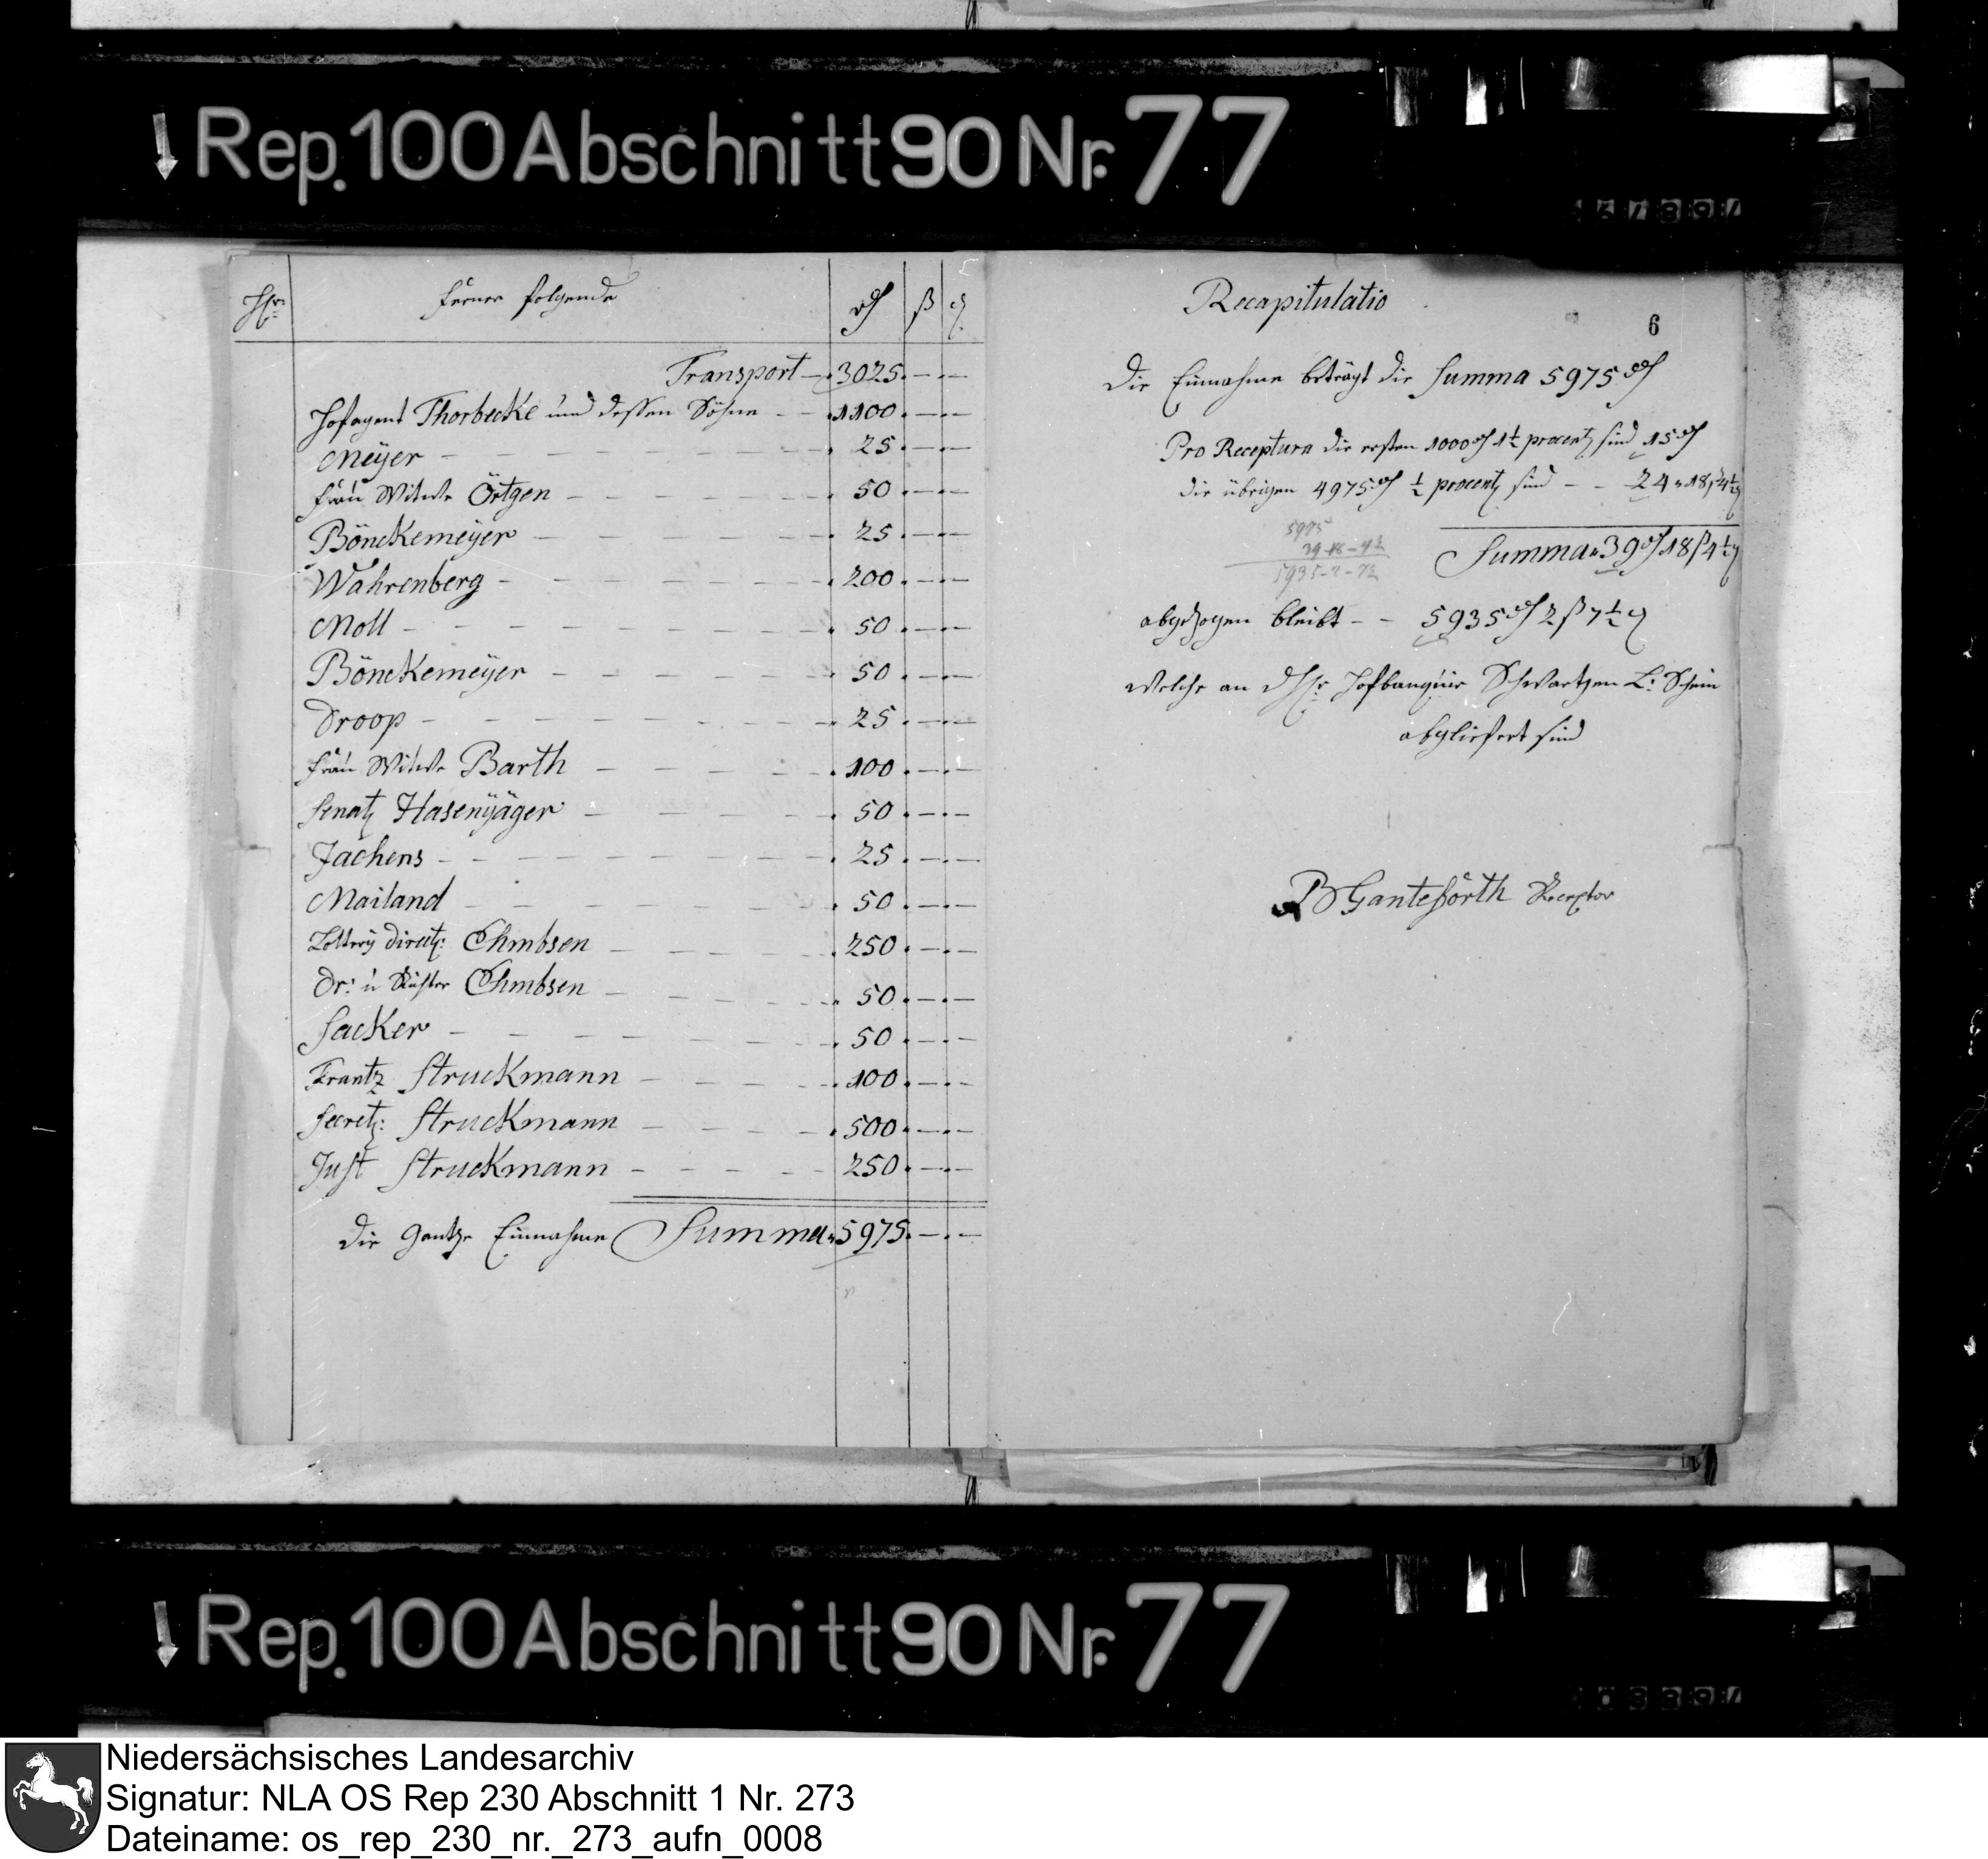 Rep. 100 Abschnitt 90 Nr. 77
Hr: ferner folgende rh ß ₰
Transport 3025. — . —
Hofagent Thorbecke und dessen Söhne 1100. — . —
Meÿer 25. — . —
frau Witwe Örtgen 50. — . —
Bönckemeÿer 25. — . —
Wahrenberg 200. — . —
Moll 50. — . —
Bönckemeÿer 50. — . —
Droop 25. — . —
frau Witwe Barth 100. — . —
Senat: Hasenjäger 50. — . —
Jachens 25. — . —
Mailand 50. — . —
Lotterÿ Direct: Ehmbsen 250. — . —
Dr: u Richter Ehmbsen 50. — . —
Sacker 50. — . —
Frantz Struckmann 100. — . —
Secret: Struckmann 500. — . —
Just Struckmann 250. — . —
Die Gantze Einnahme Summa 5975. — . —
Recapitulatio
6
Die Einnahme beträgt die Summa 5975 rh
Pro Receptura die ersten 1000 rh 1½ procent sind 15 rh
die übrigen 4975 rh ½ procent sind — — 24 „ 18 ß 4½ ₰
5975
39-18-4½
5935-2-7½
Summa 39 rh 18 ß 4½ ₰
abgezogen bleibt — — 5935 rh 2 ß 7½ ₰
welche an Hofbanquier Schwartzen L: Schein
abgeliefert sind
B Ganteförth Receptor
Rep. 100 Abschnitt 90 Nr. 77
Niedersächsisches Landesarchiv
Signatur: NLA OS Rep 230 Abschnitt 1 Nr. 273
Dateiname: os_rep_230_nr._273_aufn_0008